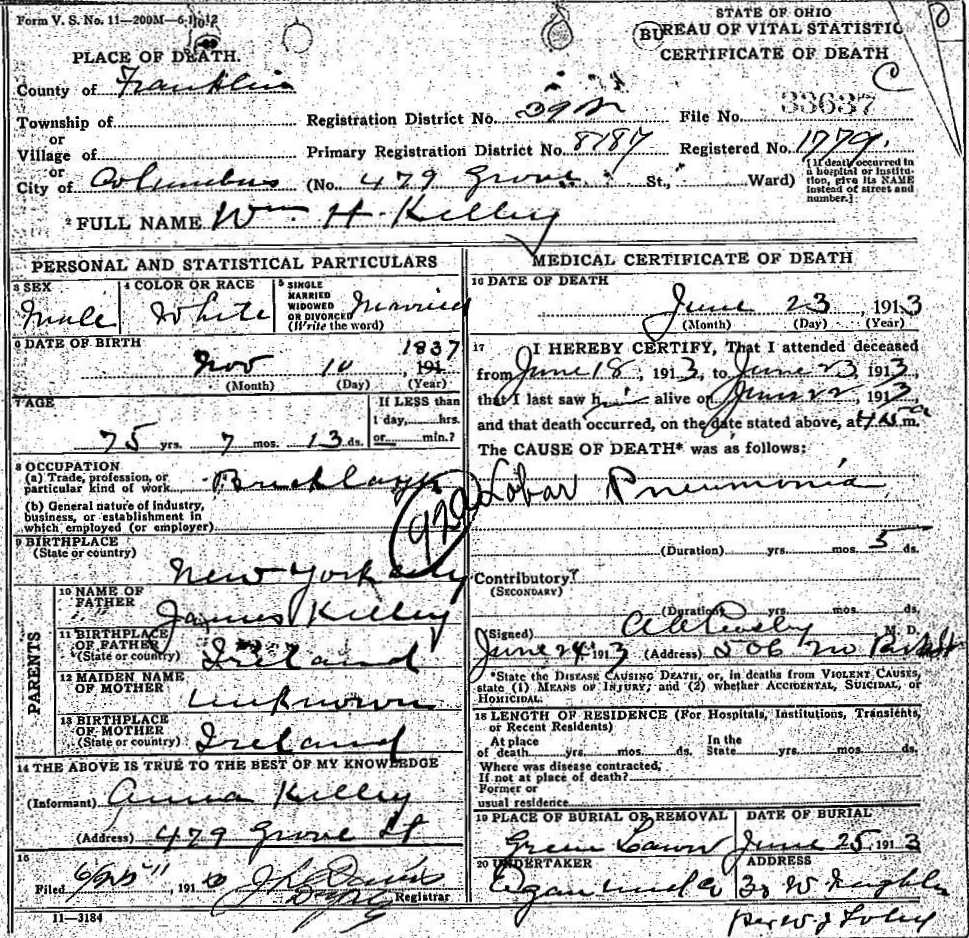 Form V. S. No. 11—200M—6-10-12
STATE OF OHIO
BUREAU OF VITAL STATISTIC
PLACE OF DEATH.
CERTIFICATE OF DEATH
C
County of Franklin
Township of
Registration District No. 392
File No. 33637
or
Village of
Primary Registration District No. 8187
Registered No. 1779.
or
City of Columbus
(No. 479 Grove St., Ward)
[If death occurred in
a hospital or institu-
tion, give its NAME
instead of street and
number.]
2 FULL NAME Wm H. Kelley
PERSONAL AND STATISTICAL PARTICULARS
3 SEX
Male
4 COLOR OR RACE
White
5 SINGLE
MARRIED
WIDOWED
OR DIVORCED
(Write the word)
Married
6 DATE OF BIRTH
Nov 10, 191 1837
(Month) (Day) (Year)
7 AGE
75 yrs. 7 mos. 13 ds.
If LESS than
1 day, hrs.
or min.?
8 OCCUPATION
(a) Trade, profession, or
particular kind of work Bricklayer
(b) General nature of industry,
business, or establishment in
which employed (or employer)
9 BIRTHPLACE
(State or country)
New York City
PARENTS
10 NAME OF
FATHER
James Kelley
11 BIRTHPLACE
OF FATHER
(State or country)
Ireland
12 MAIDEN NAME
OF MOTHER
Unknown
13 BIRTHPLACE
OF MOTHER
(State or country)
Ireland
14 THE ABOVE IS TRUE TO THE BEST OF MY KNOWLEDGE
(Informant) Anna Kelley
(Address) 479 Grove St
15
Filed 191
Registrar
11—3184
MEDICAL CERTIFICATE OF DEATH
16 DATE OF DEATH
June 23, 1913
(Month) (Day) (Year)
17 I HEREBY CERTIFY, That I attended deceased
from June 18, 1913, to June 23, 1913,
that I last saw him alive on June 22, 1913,
and that death occurred, on the date stated above, at m.
The CAUSE OF DEATH* was as follows:
Lobar Pneumonia
92a
(Duration) yrs. mos. 5 ds.
Contributory
(SECONDARY)
(Duration) yrs. mos. ds.
(Signed) M. D.
June 24 1913 (Address) 506 St
*State the DISEASE CAUSING DEATH, or, in deaths from VIOLENT CAUSES,
state (1) MEANS OF INJURY; and (2) whether ACCIDENTAL, SUICIDAL, or
HOMICIDAL.
18 LENGTH OF RESIDENCE (For Hospitals, Institutions, Transients,
or Recent Residents)
At place
of death yrs. mos. ds.
In the
State yrs. mos. ds.
Where was disease contracted,
If not at place of death?
Former or
usual residence
19 PLACE OF BURIAL OR REMOVAL
Green Lawn
DATE OF BURIAL
June 25, 1913
20 UNDERTAKER
Egan
ADDRESS
W Naghten
per W J Foley